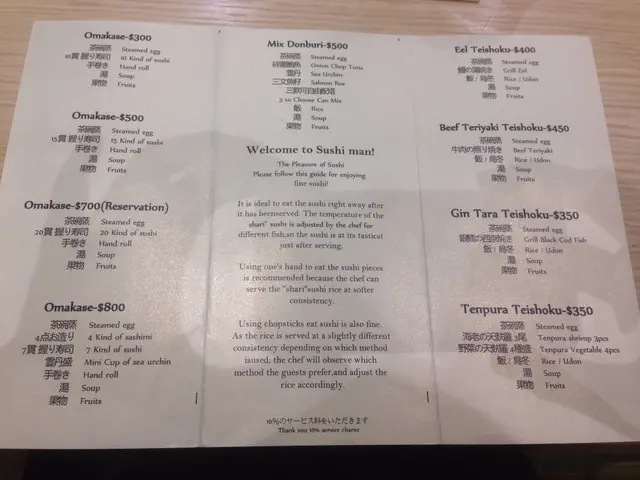 Omakase-$300
茶碗蒸 Steamed egg
10貫 握り寿司 10 Kind of sushi
手巻き Hand roll
湯 Soup
果物 Fruits
Omakase-$500
茶碗蒸 Steamed egg
15貫 握り寿司 15 Kind of sushi
手巻き Hand roll
湯 Soup
果物 Fruits
Omakase-$700(Reservation)
茶碗蒸 Steamed egg
20貫 握り寿司 20 Kind of sushi
手巻き Hand roll
湯 Soup
果物 Fruits
Omakase-$800
茶碗蒸 Steamed egg
4点お造り 4 Kind of sashimi
7貫 握り寿司 7 Kind of sushi
雲丹盛 Mini Cup of sea urchin
手巻き Hand roll
湯 Soup
果物 Fruits
Mix Donburi-$500
茶碗蒸 Steamed egg
Onion Chop Tuna
雲丹 Sea Urchin
三文魚籽 Salmon Roe
三款可自由配搭
3 to Choose Can Mix
飯 Rice
湯 Soup
果物 Fruits
Welcome to Sushi man!
The Pleasure of Sushi
Please follow this guide for enjoying
fine sushi!
It is ideal to eat the sushi right away after
it has beenserved. The temperature of the
shari" sushi is adjusted by the chef for
different fish,so the sushi is at its tasticat
just after serving.
Using one's hand to eat the sushi pieces
is recommended because the chef can
serve the "shari"sushi rice at softer
consistency.
Using chopsticks eat sushi is also fine.
As the rice is served at a slightly different
consistency depending on which method
isused, the chef will observe which
method the guests prefer,and adjust the
rice accordingly.
10%のサービス料をいただきます
Thank you 10% service charve
Eel Teishoku-$400
茶碗蒸 Steamed egg
鰻の蒲焼き Grill Eel
飯 / 烏冬 Rice / Udon
湯 Soup
果物 Fruits
Beef Teriyaki Teishoku-$450
茶碗蒸 Steamed egg
牛肉の照り焼き Beef Teriyaki
飯 / 烏冬 Rice / Udon
湯 Soup
果物 Fruits
Gin Tara Teishoku-$350
茶碗蒸 Steamed egg
Grill Black Cod Fish
飯 / 烏冬 Rice / Udon
湯 Soup
果物 Fruits
Tenpura Teishoku-$350
茶碗蒸 Steamed egg
海老の天麩羅 3尾 Tenpura shrimp 3pcs
野菜の天麩羅 4種盛 Tenpura Vegetable 4pcs
飯 / 烏冬 Rice / Udon
湯 Soup
果物 Fruits